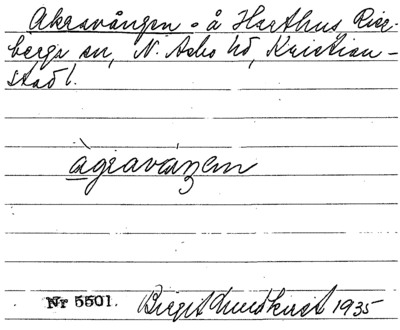 Åkravången - å Harthus Riseberga sn, N. Åsbo hd, Kristianstad l.
àgraváŋen
Nr 5501. Birgit Lundkvist 1935